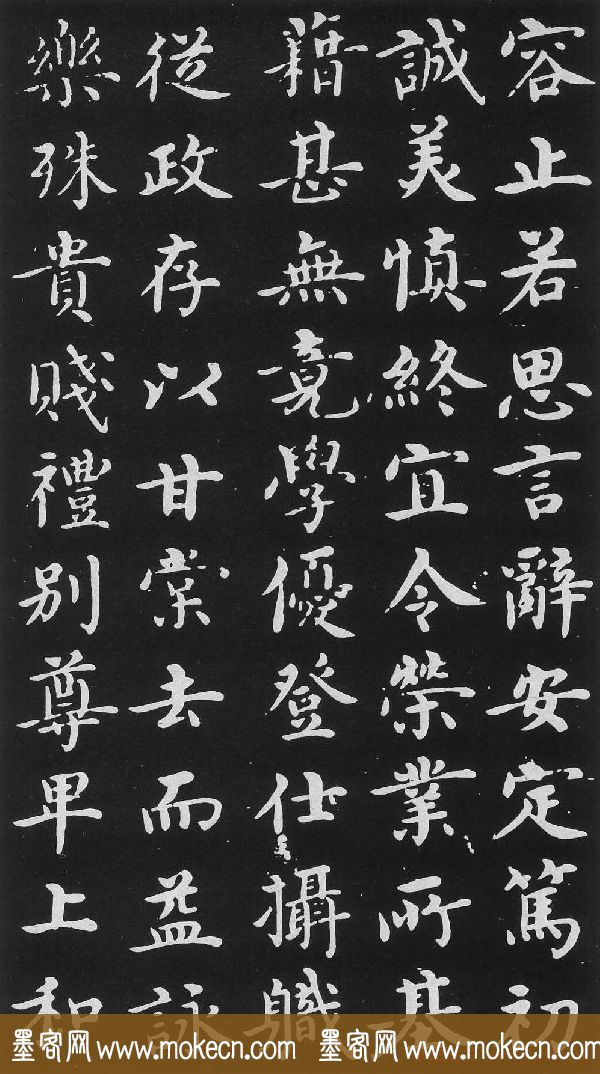 容止若思言辭安定篤初
誠美慎終宜令榮業所基
藉甚無竟學優登仕攝職
從政存以甘棠去而益詠
樂殊貴賤禮別尊卑上和
墨客网 www.mokecn.com 墨客网 www.mokecn.com